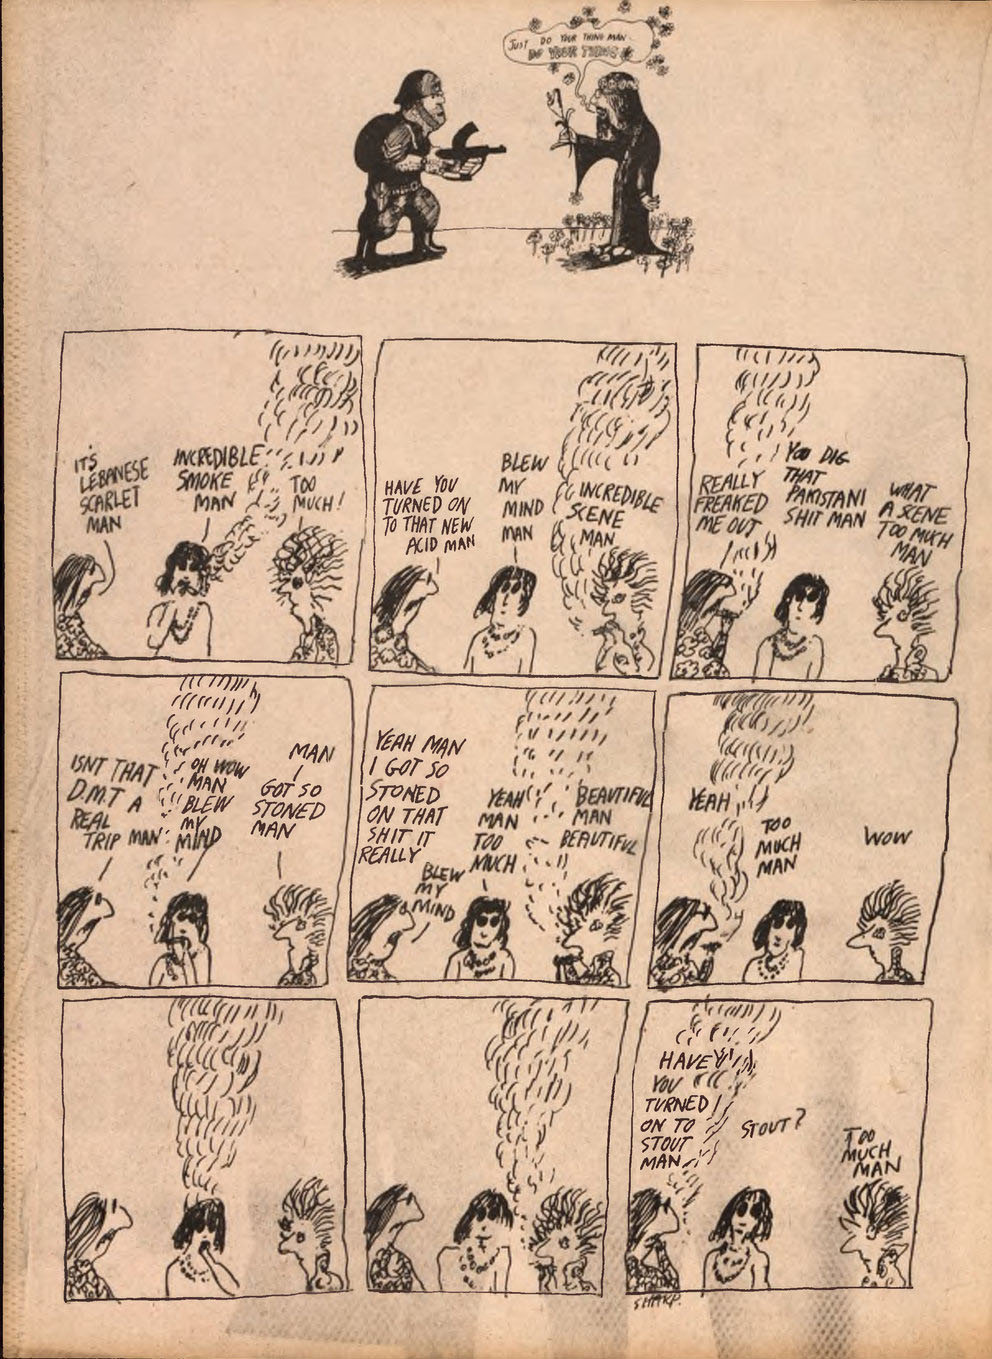 JUST DO YOUR THING MAN
DO YOUR THING
IT'S
LEBANESE
SCARLET
MAN
INCREDIBLE
SMOKE
MAN
TOO
MUCH!
HAVE YOU
TURNED ON
TO THAT NEW
ACID MAN
BLEW
MY
MIND
MAN
INCREDIBLE
SCENE
MAN
REALLY
FREAKED
ME OUT
YOU DIG
THAT
PAKISTANI
SHIT MAN
WHAT
A SCENE
TOO MUCH
MAN
ISNT THAT
D.M.T A
REAL
TRIP MAN
OH WOW
MAN
BLEW
MY
MIND
MAN
GOT SO
STONED
MAN
YEAH MAN
I GOT SO
STONED
ON THAT
SHIT IT
REALLY
BLEW
MY
MIND
YEAH
MAN
TOO
MUCH
BEAUTIFUL
MAN
BEAUTIFUL
YEAH
TOO
MUCH
MAN
WOW
HAVE
YOU
TURNED
ON TO
STOUT
MAN
STOUT?
TOO
MUCH
MAN
SHARP.